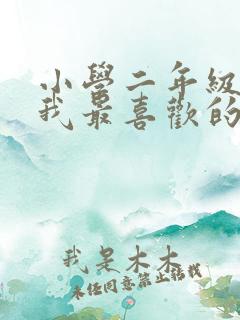 小學二年級
我最喜歡的
我是木木
未经同意禁止搭我